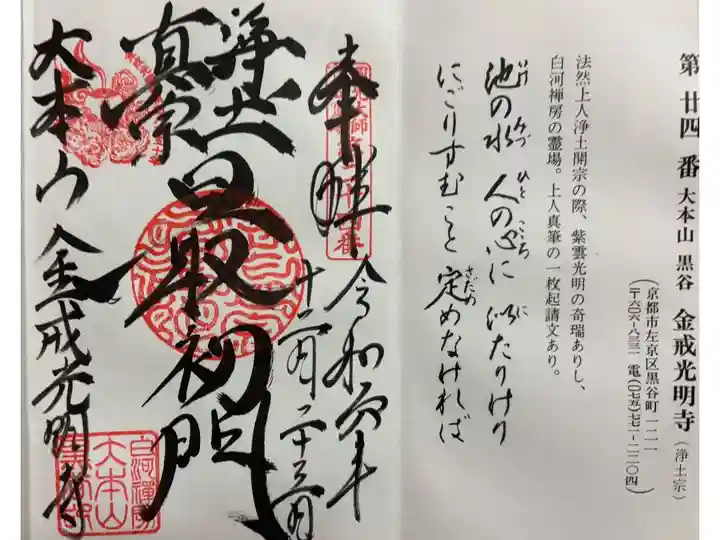 第廿四番 大本山 黒谷 金戒光明寺(浄土宗)
(京都市左京区黒谷町一二一
〒六〇六-八三三一 電(〇七五)七七一-二二〇四)
法然上人浄土開宗の際、紫雲光明の奇瑞ありし、
白河禅房の霊場。上人真筆の一枚起請文あり。
池の水 人の心に 似たりけり
いけ みづ ひと こころ に
にごりすむこと 定めなければ
さだめ
奉拝
令和元年
十二月二十三日
浄土
真宗
最初門
大本山 金戒光明寺
白河禅房
大本山